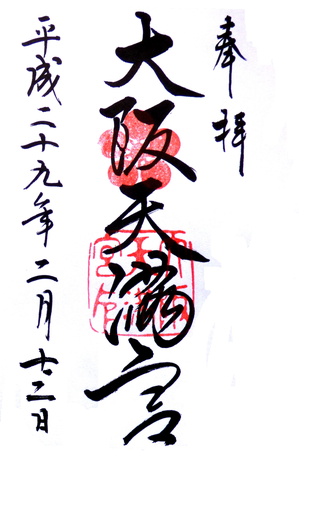 奉拝
大阪天満宮
平成二十九年二月廿二日